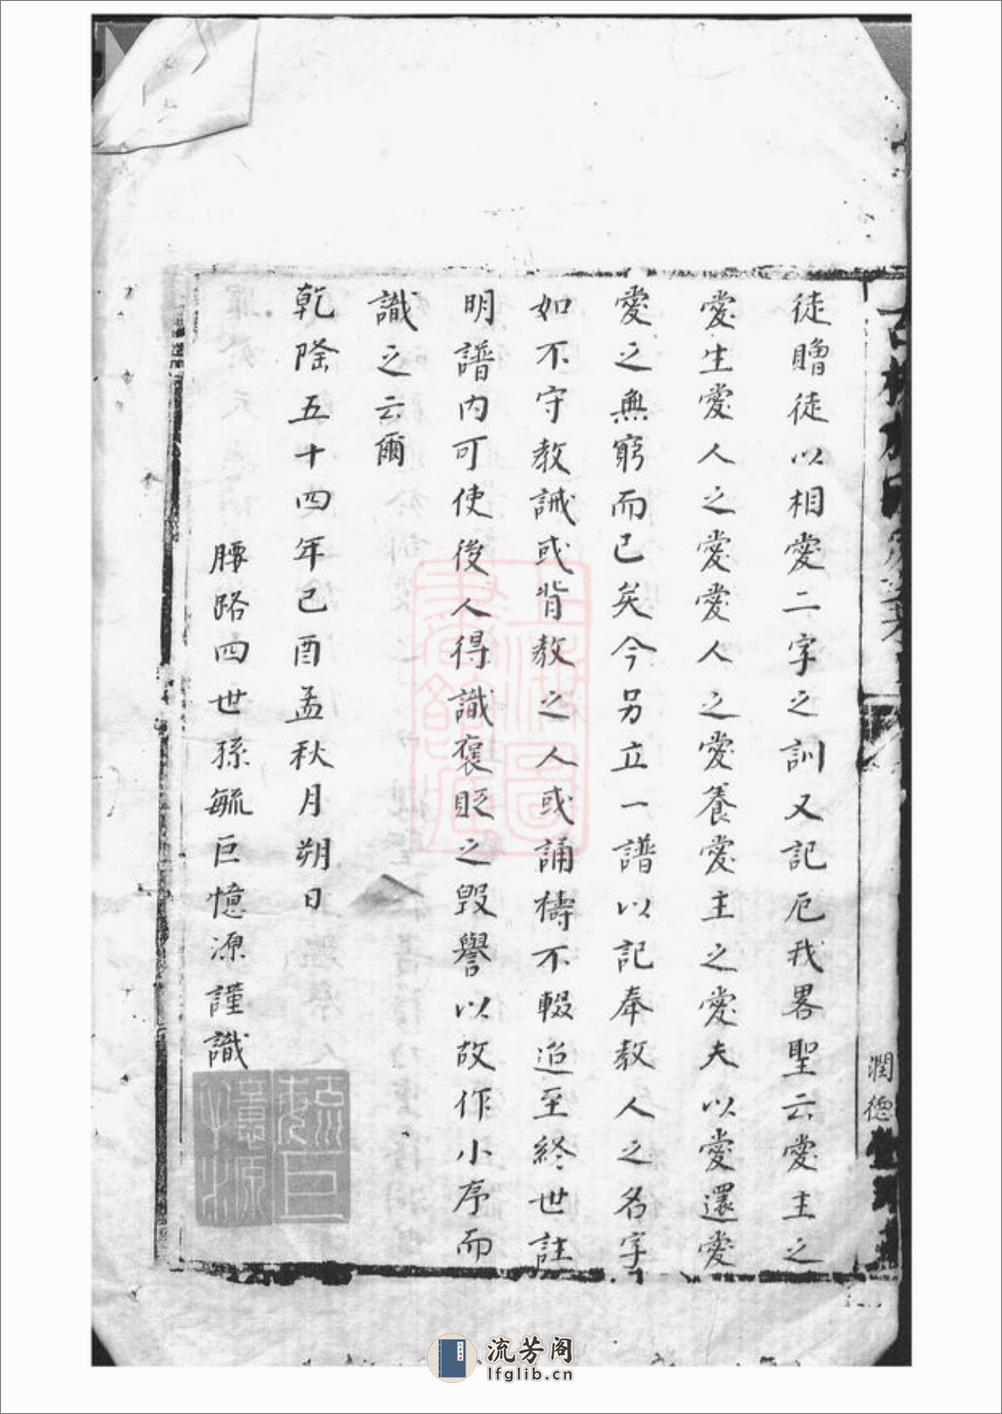 徒贈徒以相愛二字之訓又記厄我畧聖云愛主之
愛生愛人之愛愛人之愛養愛主之愛夫以愛還愛
愛之無窮而已矣今另立一譜以記奉教人之名字
如不守教誡或背教之人或誦禱不輟迨至終世註
明譜内可使後人得識褒貶之毀譽以故作小序而
識之云爾
乾隆五十四年己酉孟秋月朔日
腰路四世孫毓巨憶源謹識
潤德
毓巨
憶源
上海圖書館藏
流芳阁
lfglib.cn